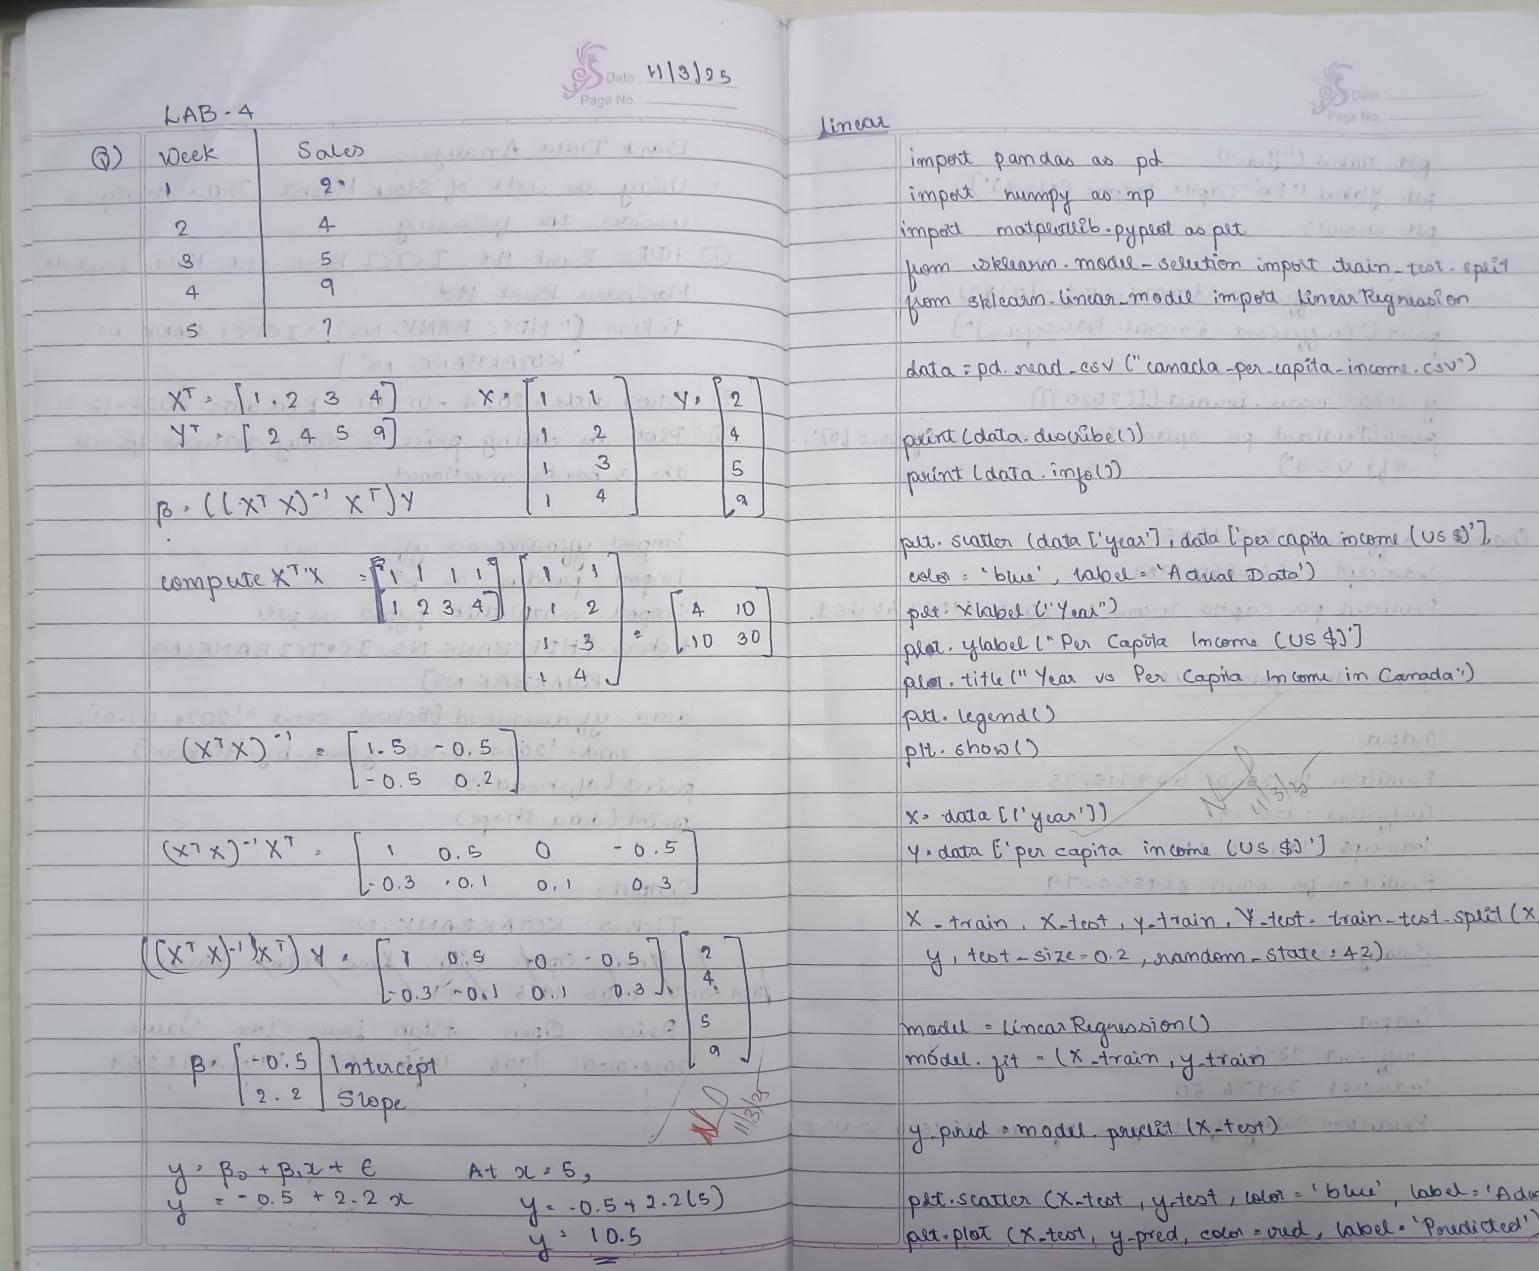 Date: 11/3/25
Page No.:
LAB-4
Q) Week Sales
1 2
2 4
3 5
4 9
5 ?
X^T = [1 . 2 3 4] X = [1 1 Y = [2
Y^T = [2 4 5 9] 1 2 4
1 3 5
β = ((X^T X)^-1 X^T) Y 1 4] 9]
compute X^T X = [1 1 1 1 [1 1
1 2 3 4] 1 2 = [4 10
1 3 10 30]
1 4]
(X^T X)^-1 = [1.5 -0.5
-0.5 0.2]
(X^T X)^-1 X^T = [1 0.5 0 -0.5
-0.3 -0.1 0.1 0.3]
((X^T X)^-1)X^T) Y = [1 0.5 -0 -0.5 [2
-0.3 -0.1 0.1 0.3] 4
5
9]
β = [-0.5 Intercept
2.2] Slope
11/3/25
y = β0 + β1x + ε At x = 5,
y = -0.5 + 2.2 x y = -0.5 + 2.2(5)
y = 10.5
Date:
Page No.
Linear
import pandas as pd
import numpy as np
import matplotlib.pyplot as plt
from sklearn.model_selection import train_test_split
from sklearn.linear_model import LinearRegression
data = pd.read_csv ("canada_per_capita_income.csv")
print (data.describe())
print (data.info())
plt. scatter (data ['year'], data ['per capita income (US $)'],
color = 'blue', label = 'Actual Data')
plt. xlabel ("Year")
plot. ylabel (" Per Capita Income (US $)']
plot. title (" Year vs Per Capita Income in Canada")
plt. legend()
plt. show()
11/3/25
X = data [['year']]
Y = data ['per capita income (US $)']
X_train, X_test, y_train, Y_test = train_test_split (X
y, test_size = 0.2, random_state = 42)
model = LinearRegression()
model. fit = (X_train, y_train
y_pred = model. predict (X_test)
plt.scatter (X_test, y_test, color = 'blue', label = 'Adu
plt.plot (X_test, y_pred, color = red, label = 'Predicted')